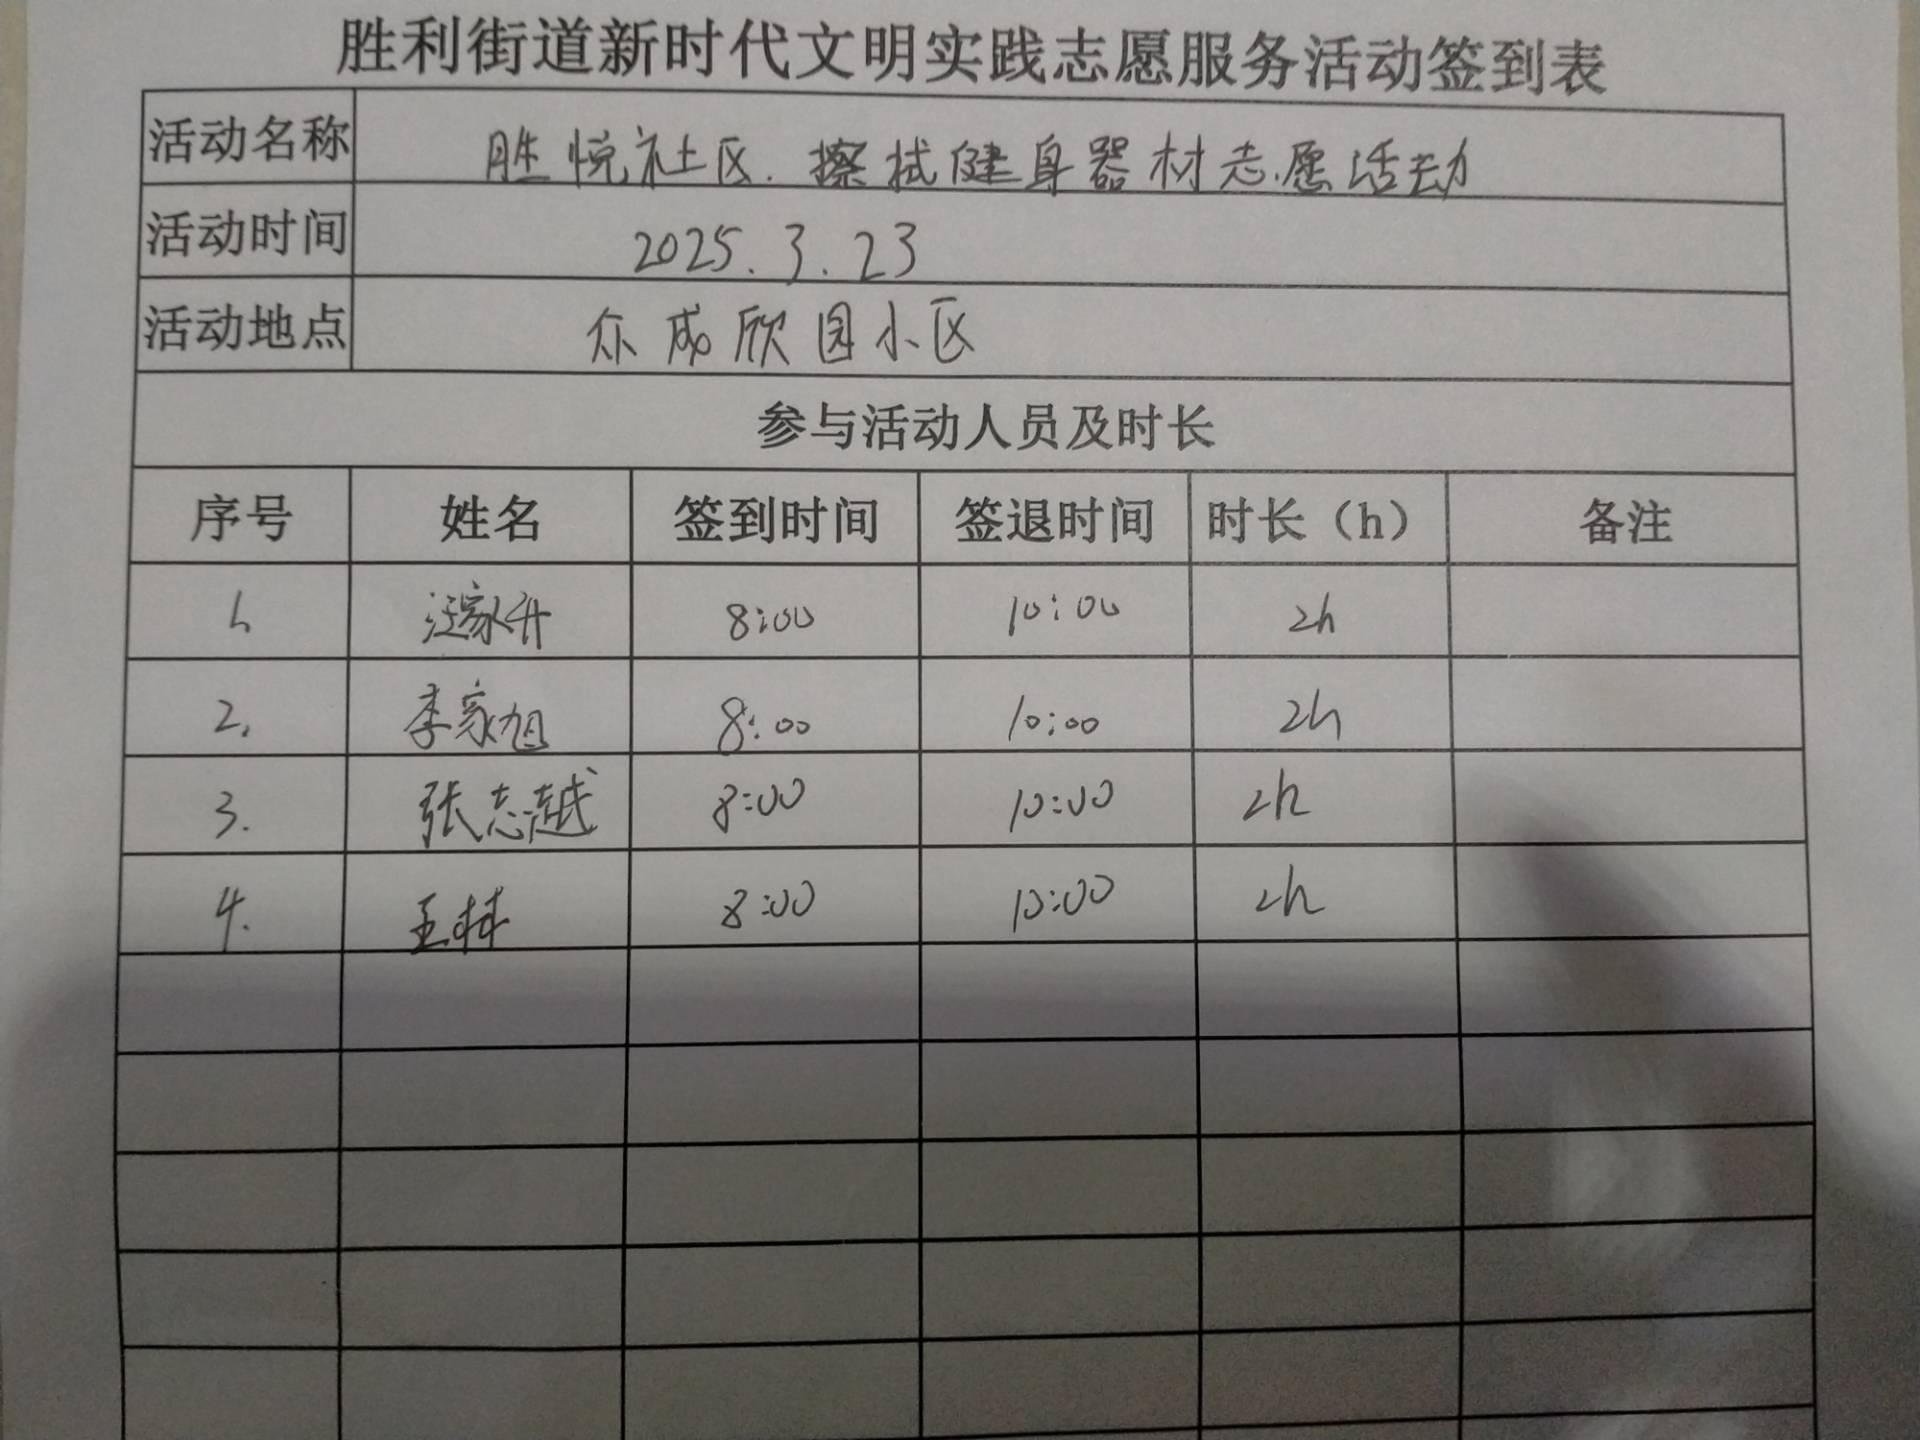 胜利街道新时代文明实践志愿服务活动签到表
活动名称 胜悦社区.擦拭健身器材志愿活动
活动时间 2025.3.23
活动地点 众成欣园小区
参与活动人员及时长
序号 姓名 签到时间 签退时间 时长（h） 备注
1. 汪家升 8:00 10:00 2h
2. 李家旭 8:00 10:00 2h
3. 张志越 8:00 10:00 2h
4. 王林 8:00 10:00 2h